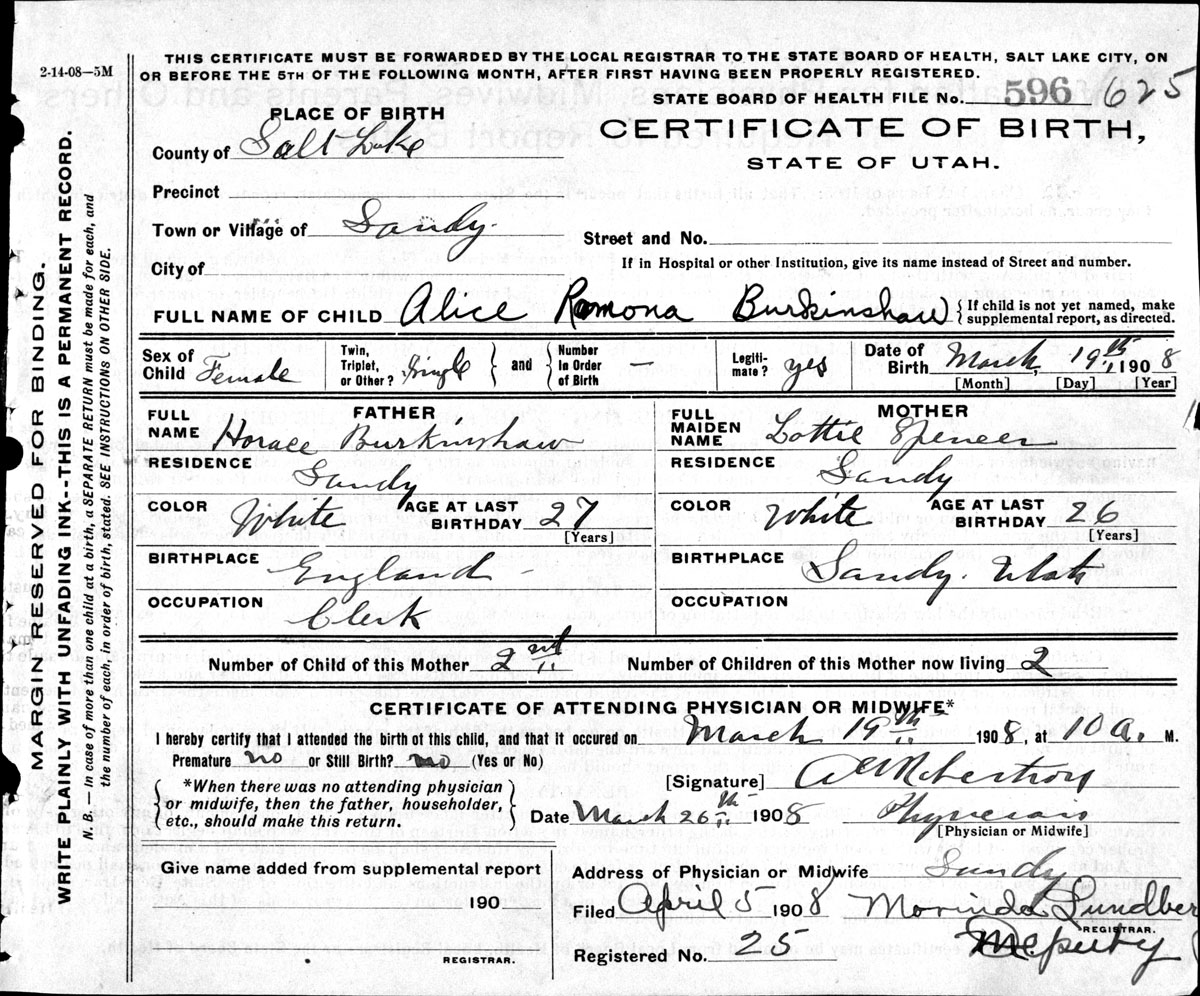 2-14-08—5M
THIS CERTIFICATE MUST BE FORWARDED BY THE LOCAL REGISTRAR TO THE STATE BOARD OF HEALTH, SALT LAKE CITY, ON
OR BEFORE THE 5TH OF THE FOLLOWING MONTH, AFTER FIRST HAVING BEEN PROPERLY REGISTERED.
STATE BOARD OF HEALTH FILE No. 596 625
CERTIFICATE OF BIRTH,
STATE OF UTAH.
PLACE OF BIRTH
County of Salt Lake
Precinct
Town or Village of Sandy.
Street and No.
City of
If in Hospital or other Institution, give its name instead of Street and number.
FULL NAME OF CHILD Alice Romona Burkinshaw {If child is not yet named, make supplemental report, as directed.
Sex of Child Female Twin, Triplet, or Other? Single { and } Number In Order of Birth — Legitimate? yes Date of Birth March 19th, 1908
[Month] [Day] [Year]
FATHER
FULL NAME Horace Burkinshaw
RESIDENCE Sandy
COLOR White AGE AT LAST BIRTHDAY 27
[Years]
BIRTHPLACE England
OCCUPATION Clerk
MOTHER
FULL MAIDEN NAME Lottie Spencer
RESIDENCE Sandy
COLOR White AGE AT LAST BIRTHDAY 26
[Years]
BIRTHPLACE Sandy. Utah
OCCUPATION
Number of Child of this Mother 2nd Number of Children of this Mother now living 2
CERTIFICATE OF ATTENDING PHYSICIAN OR MIDWIFE*
I hereby certify that I attended the birth of this child, and that it occured on March 19th 1908, at 10 a. M.
Premature no or Still Birth? no (Yes or No)
{*When there was no attending physician or midwife, then the father, householder, etc., should make this return.}
[Signature] Robertson
Date March 26th 1908 Physician
[Physician or Midwife]
Give name added from supplemental report
190
REGISTRAR.
Address of Physician or Midwife Sandy
Filed April 5 1908 Morinda Lundber
REGISTRAR.
Registered No. 25 Deputy
MARGIN RESERVED FOR BINDING.
WRITE PLAINLY WITH UNFADING INK--THIS IS A PERMANENT RECORD.
N. B.—In case of more than one child at a birth, a SEPARATE RETURN must be made for each, and
the number of each, in order of birth, stated. SEE INSTRUCTIONS ON OTHER SIDE.